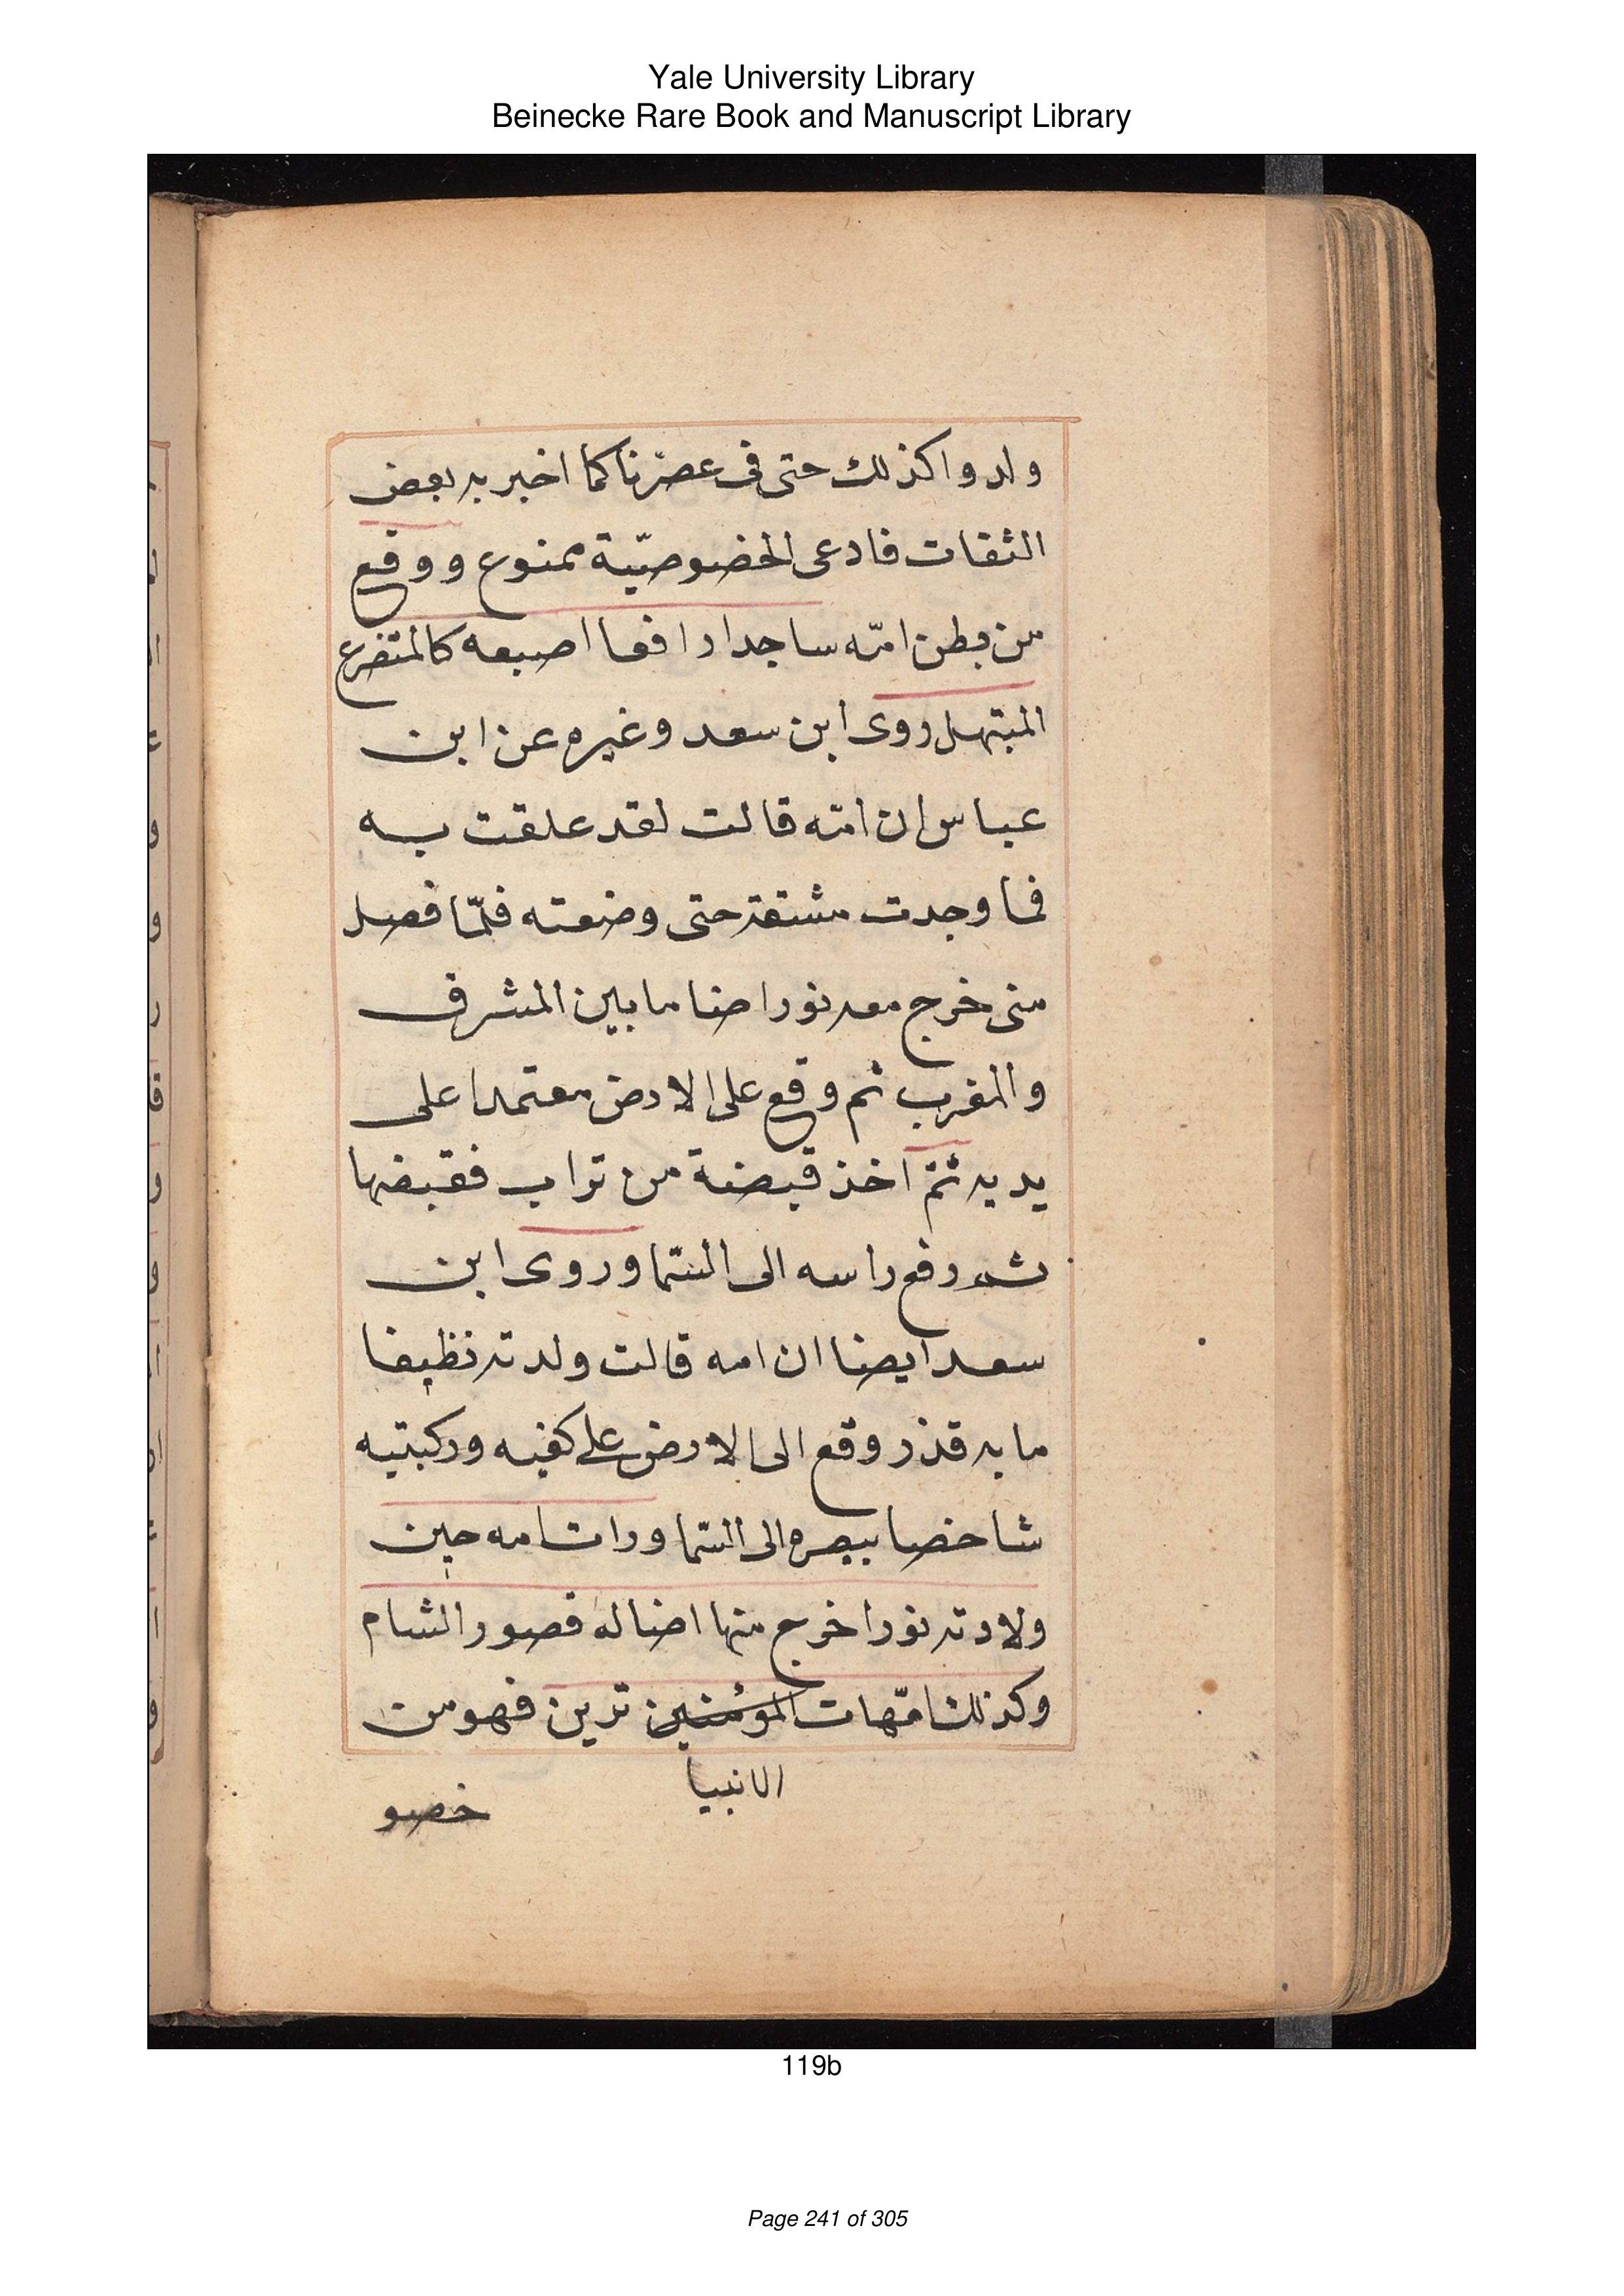 Yale University Library
Beinecke Rare Book and Manuscript Library
ولدوا كذلك حتى فى عصرنا كما اخبر به بعض
الثقات فادعى الخضوصيّة ممنوع ووقع
من بطن امّه ساجدا رافعا اصبعه كالمتضرع
المبتهل روى ابن سعد وغيره عن ابن
عباس ان امّه قالت لقد علقت به
فما وجدت مشقة حتى وضعته فلمّا فصل
منى خرج معه نور اضا ما بين المشرق
والمغرب ثم وقع على الارض معتمدا على
يديه ثمّ اخذ قبضة من تراب فقبضها
ثم رفع راسه الى السّما وروى ابن
سعد ايضا ان امه قالت ولدته نظيفا
ما به قذر وقع الى الارض على كفيه وركبتيه
شاخصا ببصره الى السّما ورات امه حين
ولادته نورا خرج منها اضا له قصور الشام
وكذلك امّهات المؤمنين ترين فهو من
الانبيا
خصو
119b
Page 241 of 305